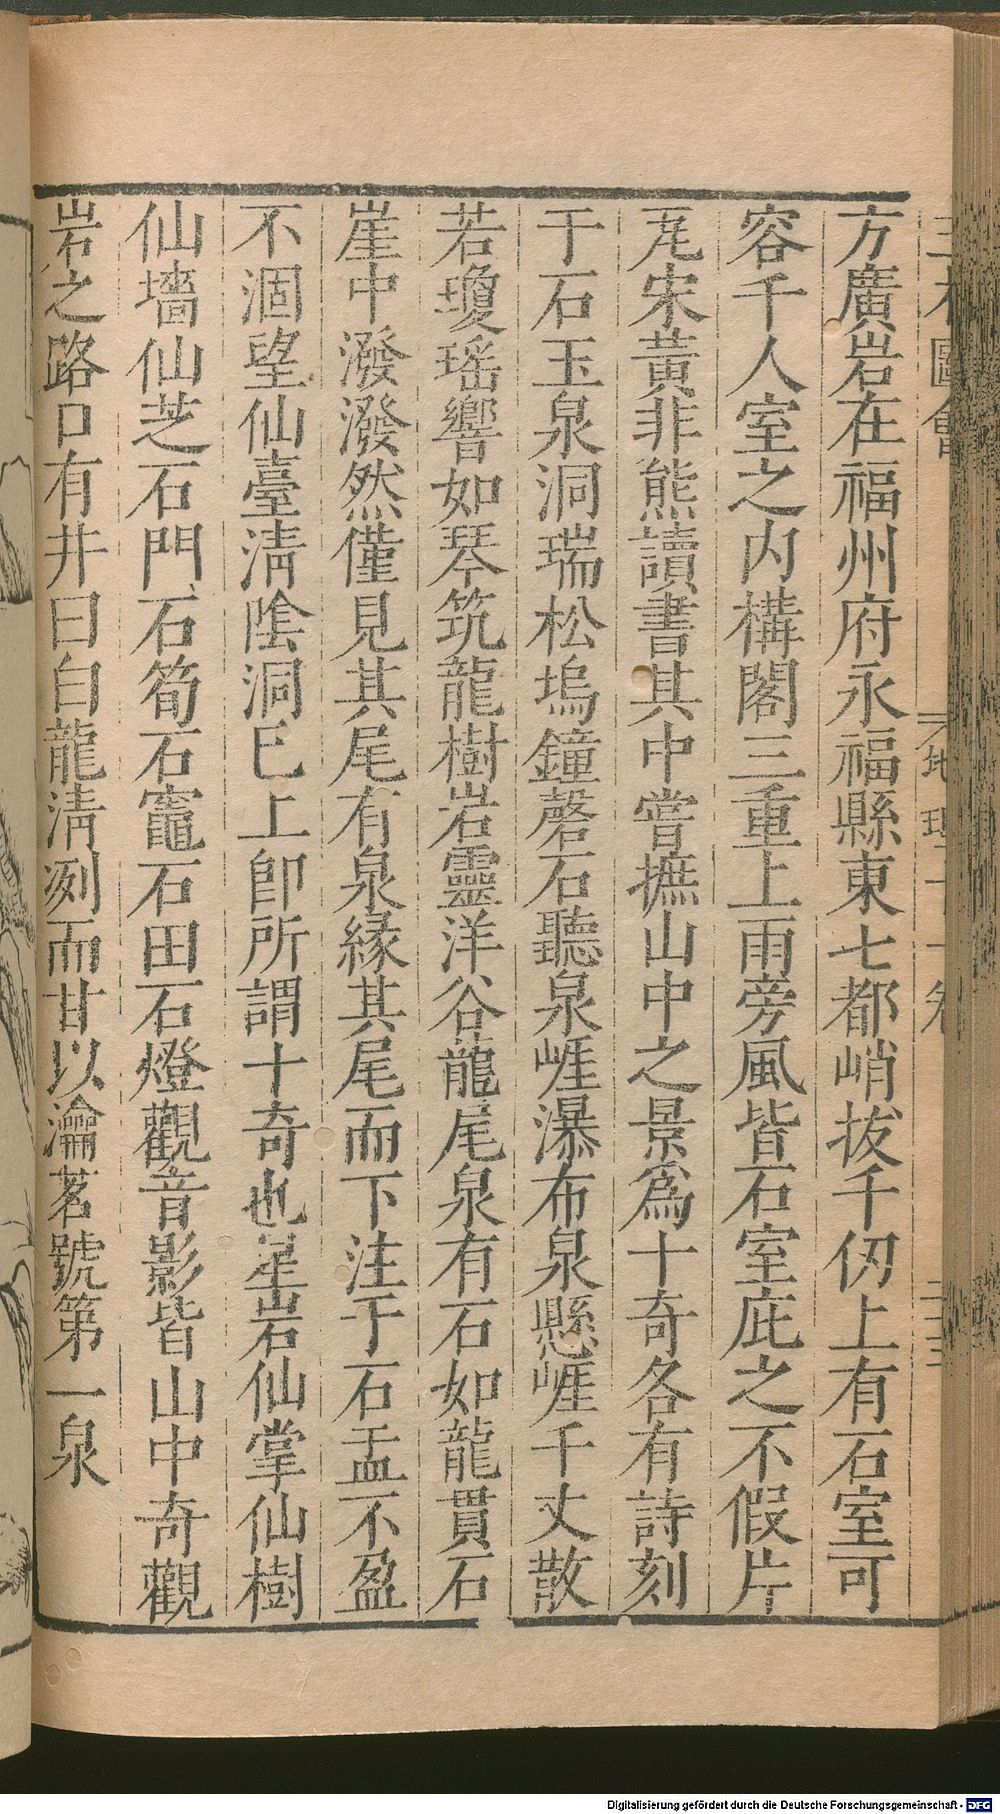 三才圖會 地理十一卷 二十三
方廣岩在福州府永福縣東七都峭拔千仞上有石室可
容千人室之内構閣三重上雨旁風皆石室庇之不假片
瓦宋黃非熊讀書其中嘗摭山中之景爲十奇各有詩刻
于石玉泉洞瑞松塢鐘磬石聽泉崕瀑布泉懸崕千丈散
若瓊瑤響如琴筑龍樹岩靈洋谷龍尾泉有石如龍貫石
崖中潑潑然僅見其尾有泉緣其尾而下注于石盂不盈
不涸望仙臺淸陰洞已上卽所謂十奇也星岩仙掌仙樹
仙墻仙芝石門石筍石竈石田石燈觀音影皆山中奇觀
岩之路口有井曰白龍淸冽而甘以瀹茗號第一泉
Digitalisierung gefördert durch die Deutsche Forschungsgemeinschaft - DFG